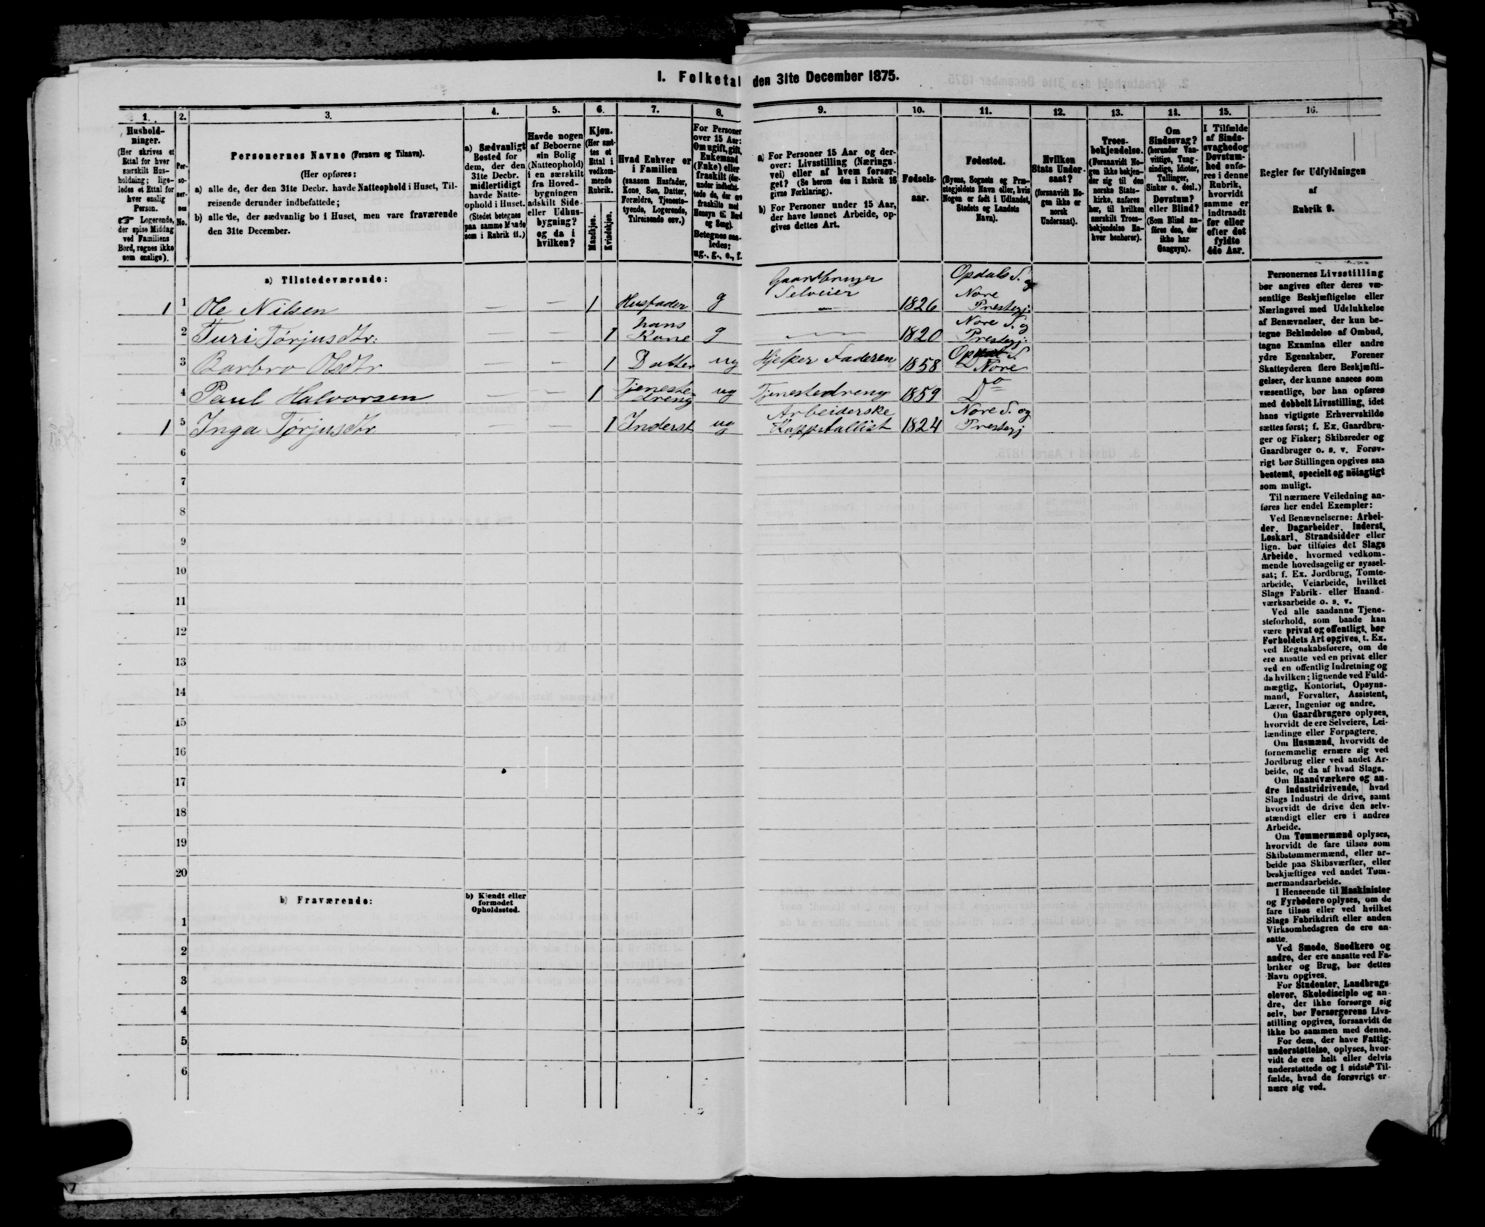 I. Folketal den 31te December 1875.
1. 2. 3. 4. 5. 6. 7. 8. 9. 10. 11. 12. 13. 14. 15. 16.
Hushold-
ninger.
(Her skrives et
Ettal for hver
særskilt Hus-
holdning; lige-
ledes et Ettal for
hver enslig
Person.
☞ Logerende,
der spise Middag
ved Familiens
Bord, regnes ikke
som enslige).
Personernes Navne (Fornavn og Tilnavn).
(Her opføres:
a) alle de, der den 31te Decbr. havde Natteophold i Huset, Til-
reisende derunder indbefattede;
b) alle de, der sædvanlig bo i Huset, men vare fraværende
den 31te December.
a) Sædvanligt
Bosted for
dem, der den
31te Decbr.
midlertidigt
havde Natte-
ophold i Huset.
(Stedet betegnes
paa samme Maade
som i Rubrik 11.)
Havde nogen
af Beboerne
sin Bolig
(Natteophold)
i en særskilt
fra Hoved-
bygningen
adskilt Side-
eller Udhus-
bygning?
og da i
hvilken?
Kjøn.
(Her sæt-
tes et
Ettal i
vedkom-
mende
Rubrik.
Mandkjøn.
Kvindekjøn.
Hvad Enhver er
i Familien
(saasom Husfader,
Kone, Søn, Datter,
Forældre, Tjeneste-
tyende, Logerende,
Tilreisende osv.)
For Personer
over 15 Aar:
Om ugift, gift,
Enkemand
(Enke) eller
fraskilt
Betegnes saa-
ledes:
ug., g., e., f.
a) For Personer 15 Aar og der-
over: Livsstilling (Nærings-
vei) eller af hvem forsør-
get? (Se herom den i Rubrik 16
givne Forklaring).
b) For Personer under 15 Aar,
der have lønnet Arbeide, op-
gives dettes Art.
Fødsels-
aar.
Fødested.
(Byens, Sognets og Præ-
stegjeldets Navn eller, hvis
Nogen er født i Udlandet,
Stedets og Landets
Navn).
Hvilken
Stats Under-
saat?
(forsaavidt No-
gen ikke er
norsk
Undersaat).
Troes-
bekjendelse.
(Forsaavidt No-
gen ikke bekjen-
der sig til den
norske Stats-
kirke, anføres
her, til hvilken
særskilt Troes-
bekjendelse En-
hver henhører).
Om
Sindssvag?
(herunder Van-
vittige, Tung-
sindige, Idioter,
Tullinger,
Sinker o. desl.)
Døvstum?
eller Blind?
(Som Blind an-
føres den, der
ikke har
Gangsyn).
I Tilfælde
af Sinds-
svaghed og
Døvstum-
hed anfø-
res i denne
Rubrik,
hvorvidt
samme er
indtraadt
før eller
efter det
fyldte
4de Aar.
Regler for Udfyldningen
af
Rubrik 9.
a) Tilstedeværende:
1 1 Ole Nilsen — — 1 Husfader g Gaardbruger Selveier 1826 Opdals S. og Nore Prestegj:
2 Turi Tørjusdtr: — — 1 hans Kone g — 1820 Nore S. og Prestegj:
3 Barbro Olsdtr — — 1 Datter ug Hjelper Faderen 1858 Opdal S Nore
4 Paul Halvorsen — — 1 Tjeneste dreng ug Tjenestedreng 1859 Do
1 5 Inga Tørjusdtr — — 1 Inderst ug Arbeiderske Kappitallist 1824 Nore S. og Prestegj
6
7
8
9
10
11
12
13
14
15
16
17
18
19
20
b) Fraværende:
b) Kjendt eller
formodet
Opholdssted.
1
2
3
4
5
6
Personernes Livsstilling
bør angives efter deres væ-
sentlige Beskjæftigelse eller
Næringsvei med Udelukkelse
af Benævnelser, der kun be-
tegne Beklædelse af Ombud,
tagne Examina eller andre
ydre Egenskaber. Forener
Skatteyderen flere Beskjæfti-
gelser, der kunne ansees som
væsentlige, bør han opføres
med dobbelt Livsstilling, idet
hans vigtigste Erhvervskilde
sættes først; f. Ex. Gaardbru-
ger og Fisker; Skibsreder og
Gaardbruger o. s. v. Forøv-
rigt bør Stillingen opgives saa
bestemt, specielt og nöiagtigt
som muligt.
Til nærmere Veiledning an-
føres her endel Exempler:
Ved Benævnelserne: Arbei-
der, Dagarbeider, Inderst,
Løskarl, Strandsidder eller
lign. bør tilføies det Slags
Arbeide, hvormed vedkom-
mende hovedsagelig er syssel-
sat; f. Ex. Jordbrug, Tomte-
arbeide, Veiarbeide, hvilket
Slags Fabrik- eller Haand-
værksarbeide o. s. v.
Ved alle saadanne Tjene-
steforhold, som baade kan
være privat og offentligt, bør
Forholdets Art opgives, t. Ex.
ved Regnskabsførere, om de
ere ansatte ved en privat eller
ved en offentlig Indretning og
da hvilken; lignende ved Fuld-
mægtig, Kontorist, Opsyns-
mand, Forvalter, Assistent,
Lærer, Ingeniør og andre.
Om Gaardbrugere oplyses,
hvorvidt de ere Selveiere, Lei-
lændinge eller Forpagtere.
Om Husmænd, hvorvidt de
fornemmelig ernære sig ved
Jordbrug eller ved andet Ar-
beide, og da af hvad Slags.
Om Haandværkere og an-
dre industridrivende, hvad
Slags Industri de drive, samt
hvorvidt de drive den selv-
stændigt eller ere i andres
Arbeide.
Om Tømmermænd oplyses,
hvorvidt de fare tilsøs som
Skibstømmermænd, eller ar-
beide paa Skibsværfter, eller
beskjæftiges ved andet Tøm-
mermandsarbeide.
I Henseende til Maskinister
og Fyrbødere oplyses, om de
fare tilsøs eller ved hvilket
Slags Fabrikdrift eller anden
Virksomhedsgren de ere an-
satte.
Ved Smede, Snedkere og
andre, der ere ansatte ved Fa-
briker og Brug, bør dettes
Navn opgives.
For Studenter, Landbrugs-
elever, Skoledisciple og an-
dre, der ikke forsørge sig
selv, bør Forsørgerens Livs-
stilling opgives, forsaavidt de
ikke bo sammen med denne.
For dem, der have Fattig-
understøttelse, oplyses, hvor-
vidt de ere helt eller delvis
understøttede og i sidste Til-
fælde, hvad de forøvrigt er-
nære sig ved.